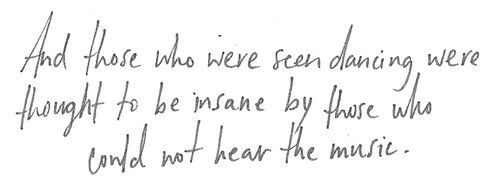 And those who were seen dancing were
thought to be insane by those who
could not hear the music.